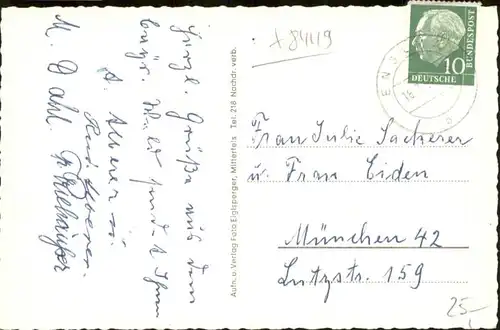 + 8449
10
DEUTSCHE
BUNDESPOST
Herzl. Grüße aus dem
bayr. Wald sendet Ihnen
A.
M. Dahl.
Aufn. u. Verlag Foto Eiglsperger, Mitterfels Tel. 218 Nachdr. verb.
Frau Julie Sackerer
u. Frau Eiden
München 42
Lutzstr. 159
25-